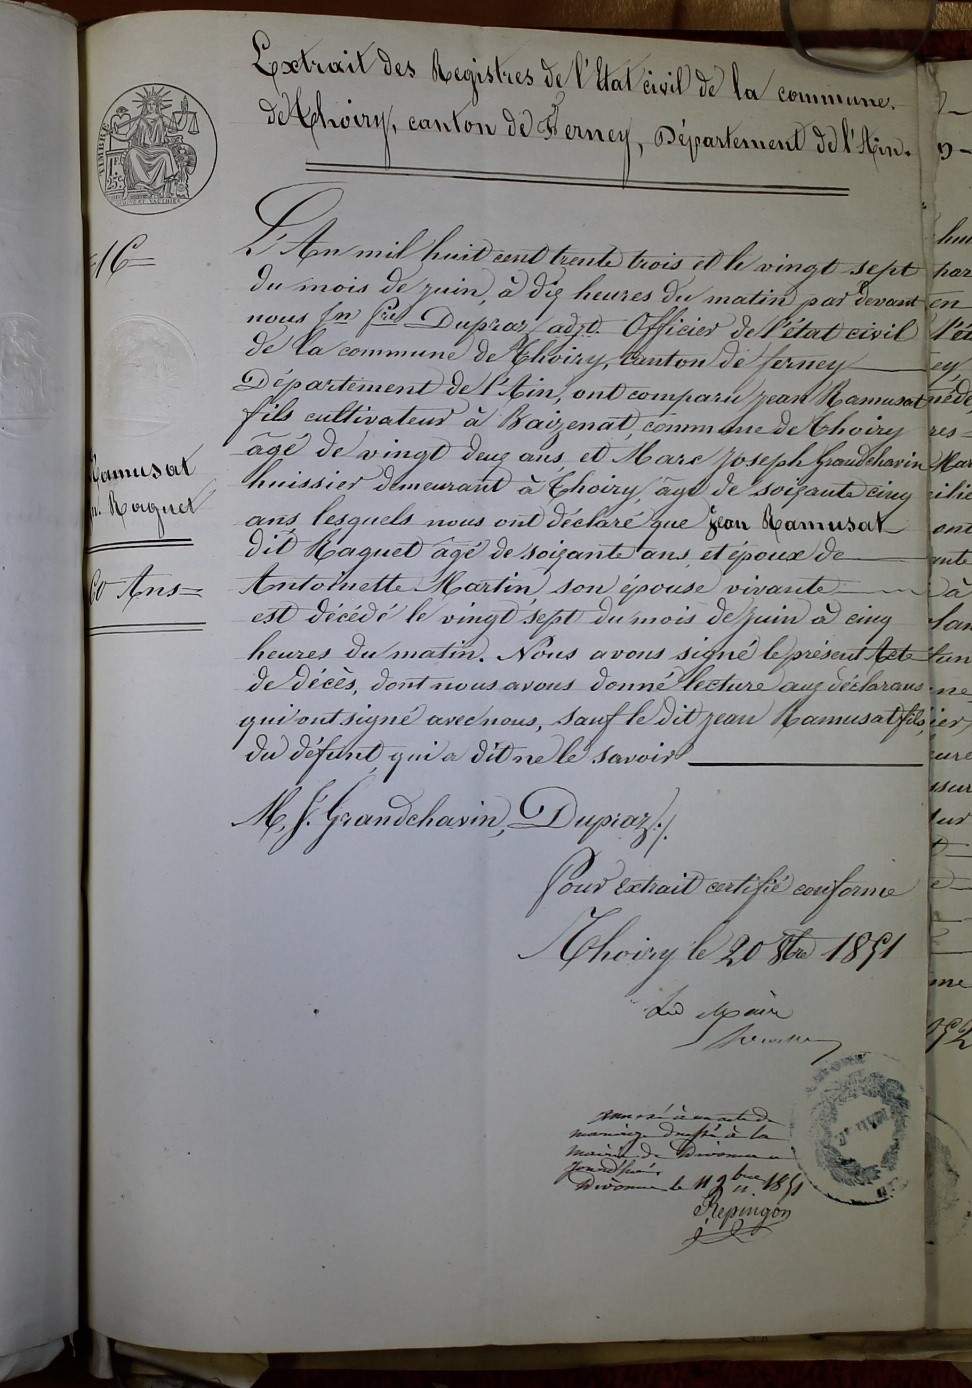 Extrait des Registres de l'Etat civil de la commune
de Thoiry, canton de Ferney, Département de l'Ain.
TIMBRE
1F
25C
16
L'An mil huit cent trente trois et le vingt sept
du mois de juin, à dix heures du matin par devant
nous Jn Fois Dupraz adjt Officier de l'état civil
de la commune de Thoiry, canton de ferney
Département de l'Ain, ont comparu jean Ramusat
fils cultivateur à Baizenat, commune de Thoiry
âgé de vingt deux ans et Marc Joseph Grandchavin
huissier demeurant à Thoiry, âgé de soixante cinq
ans, lesquels nous ont déclaré que Jean Ramusat
dit Raquet âgé de soixante ans, et époux de
Antoinette Martin son épouse vivante
est décédé le vingt sept du mois de juin à cinq
heures du matin. Nous avons signé le présent Acte
de décès, dont nous avons donné lecture aux déclarans
qui ont signé avec nous, sauf le dit jean Ramusat fils,
du défunt, qui a dit ne le savoir
Ramusat
Jn. Raquet
60 Ans
M. J. Grandchavin, Dupraz
Pour extrait certifié conforme
Thoiry le 20 8bre 1851
Le Maire
annexé à un acte de
mariage dressé à la
mairie de Divonne
jourd'hui
Divonne le 11 9bre 1851
Repingon